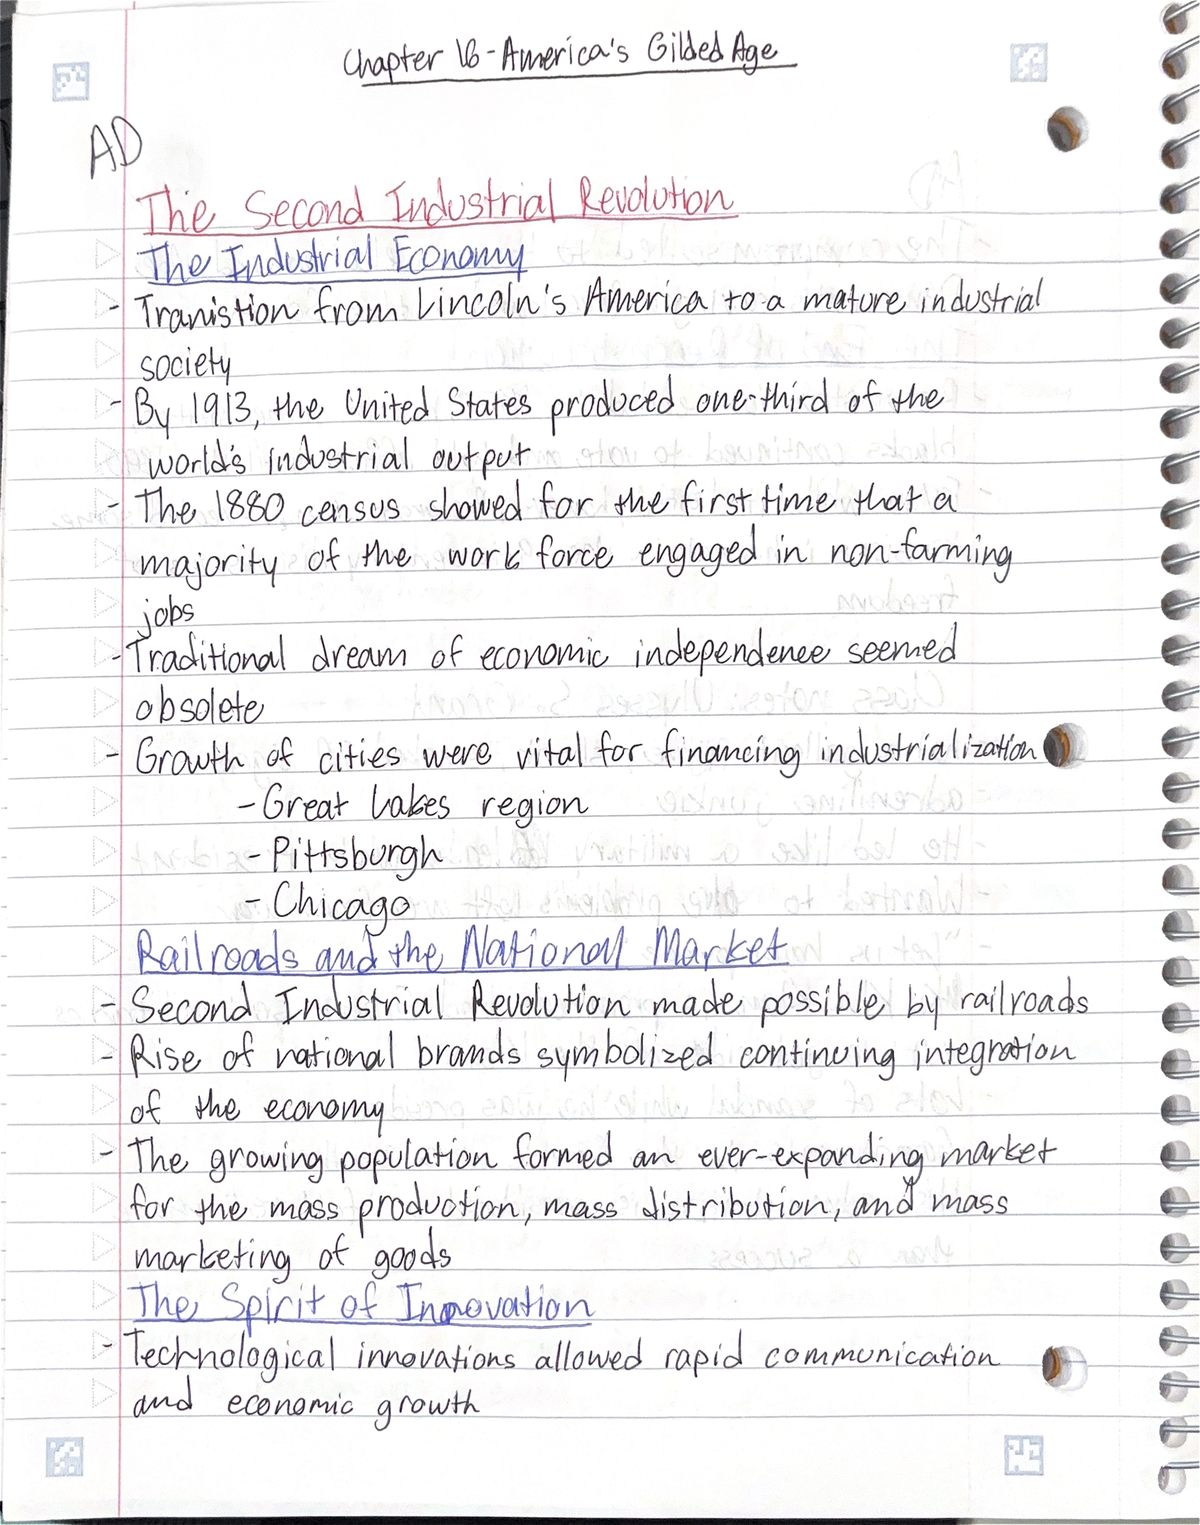 Chapter 16 - America's Gilded Age
AD
The Second Industrial Revolution
The Industrial Economy
- Tranistion from Lincoln's America to a mature industrial
society
- By 1913, the United States produced one-third of the
world's industrial output
- The 1880 census showed for the first time that a
majority of the work force engaged in non-farming
jobs
- Traditional dream of economic independence seemed
obsolete
- Growth of cities were vital for financing industrialization
- Great Lakes region
- Pittsburgh
- Chicago
Railroads and the National Market
- Second Industrial Revolution made possible by railroads
- Rise of national brands symbolized continuing integration
of the economy
- The growing population formed an ever-expanding market
for the mass production, mass distribution, and mass
marketing of goods
The Spirit of Innovation
- Technological innovations allowed rapid communication
and economic growth